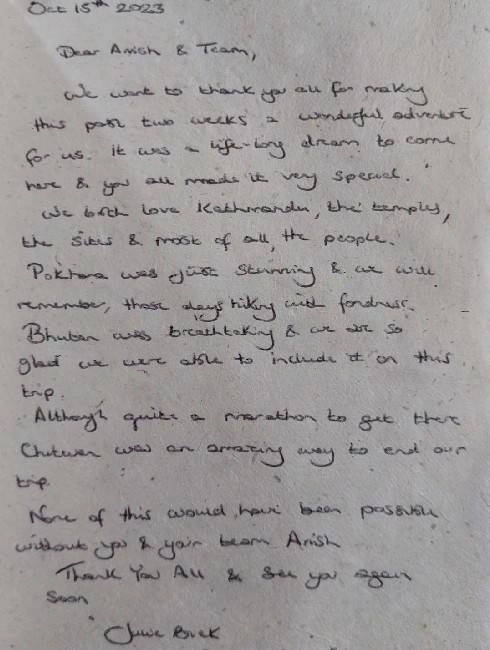 Oct 15th 2023
Dear Anish & Team,
We want to thank you all for making
this past two weeks a wonderful adventure
for us. it was a life-long dream to come
here & you all made it very special.
We both love Kathmandu, the temples,
the sites & most of all, the people.
Pokhara was just stunning & we will
remember, those days hiking with fondness.
Bhutan was breathtaking & we are so
glad we were able to include it on this
trip.
Although quite a marathon to get there
Chitwan was an amazing way to end our
trip.
None of this would have been possible
without you & your team Anish
Thank You All & See you again
Soon